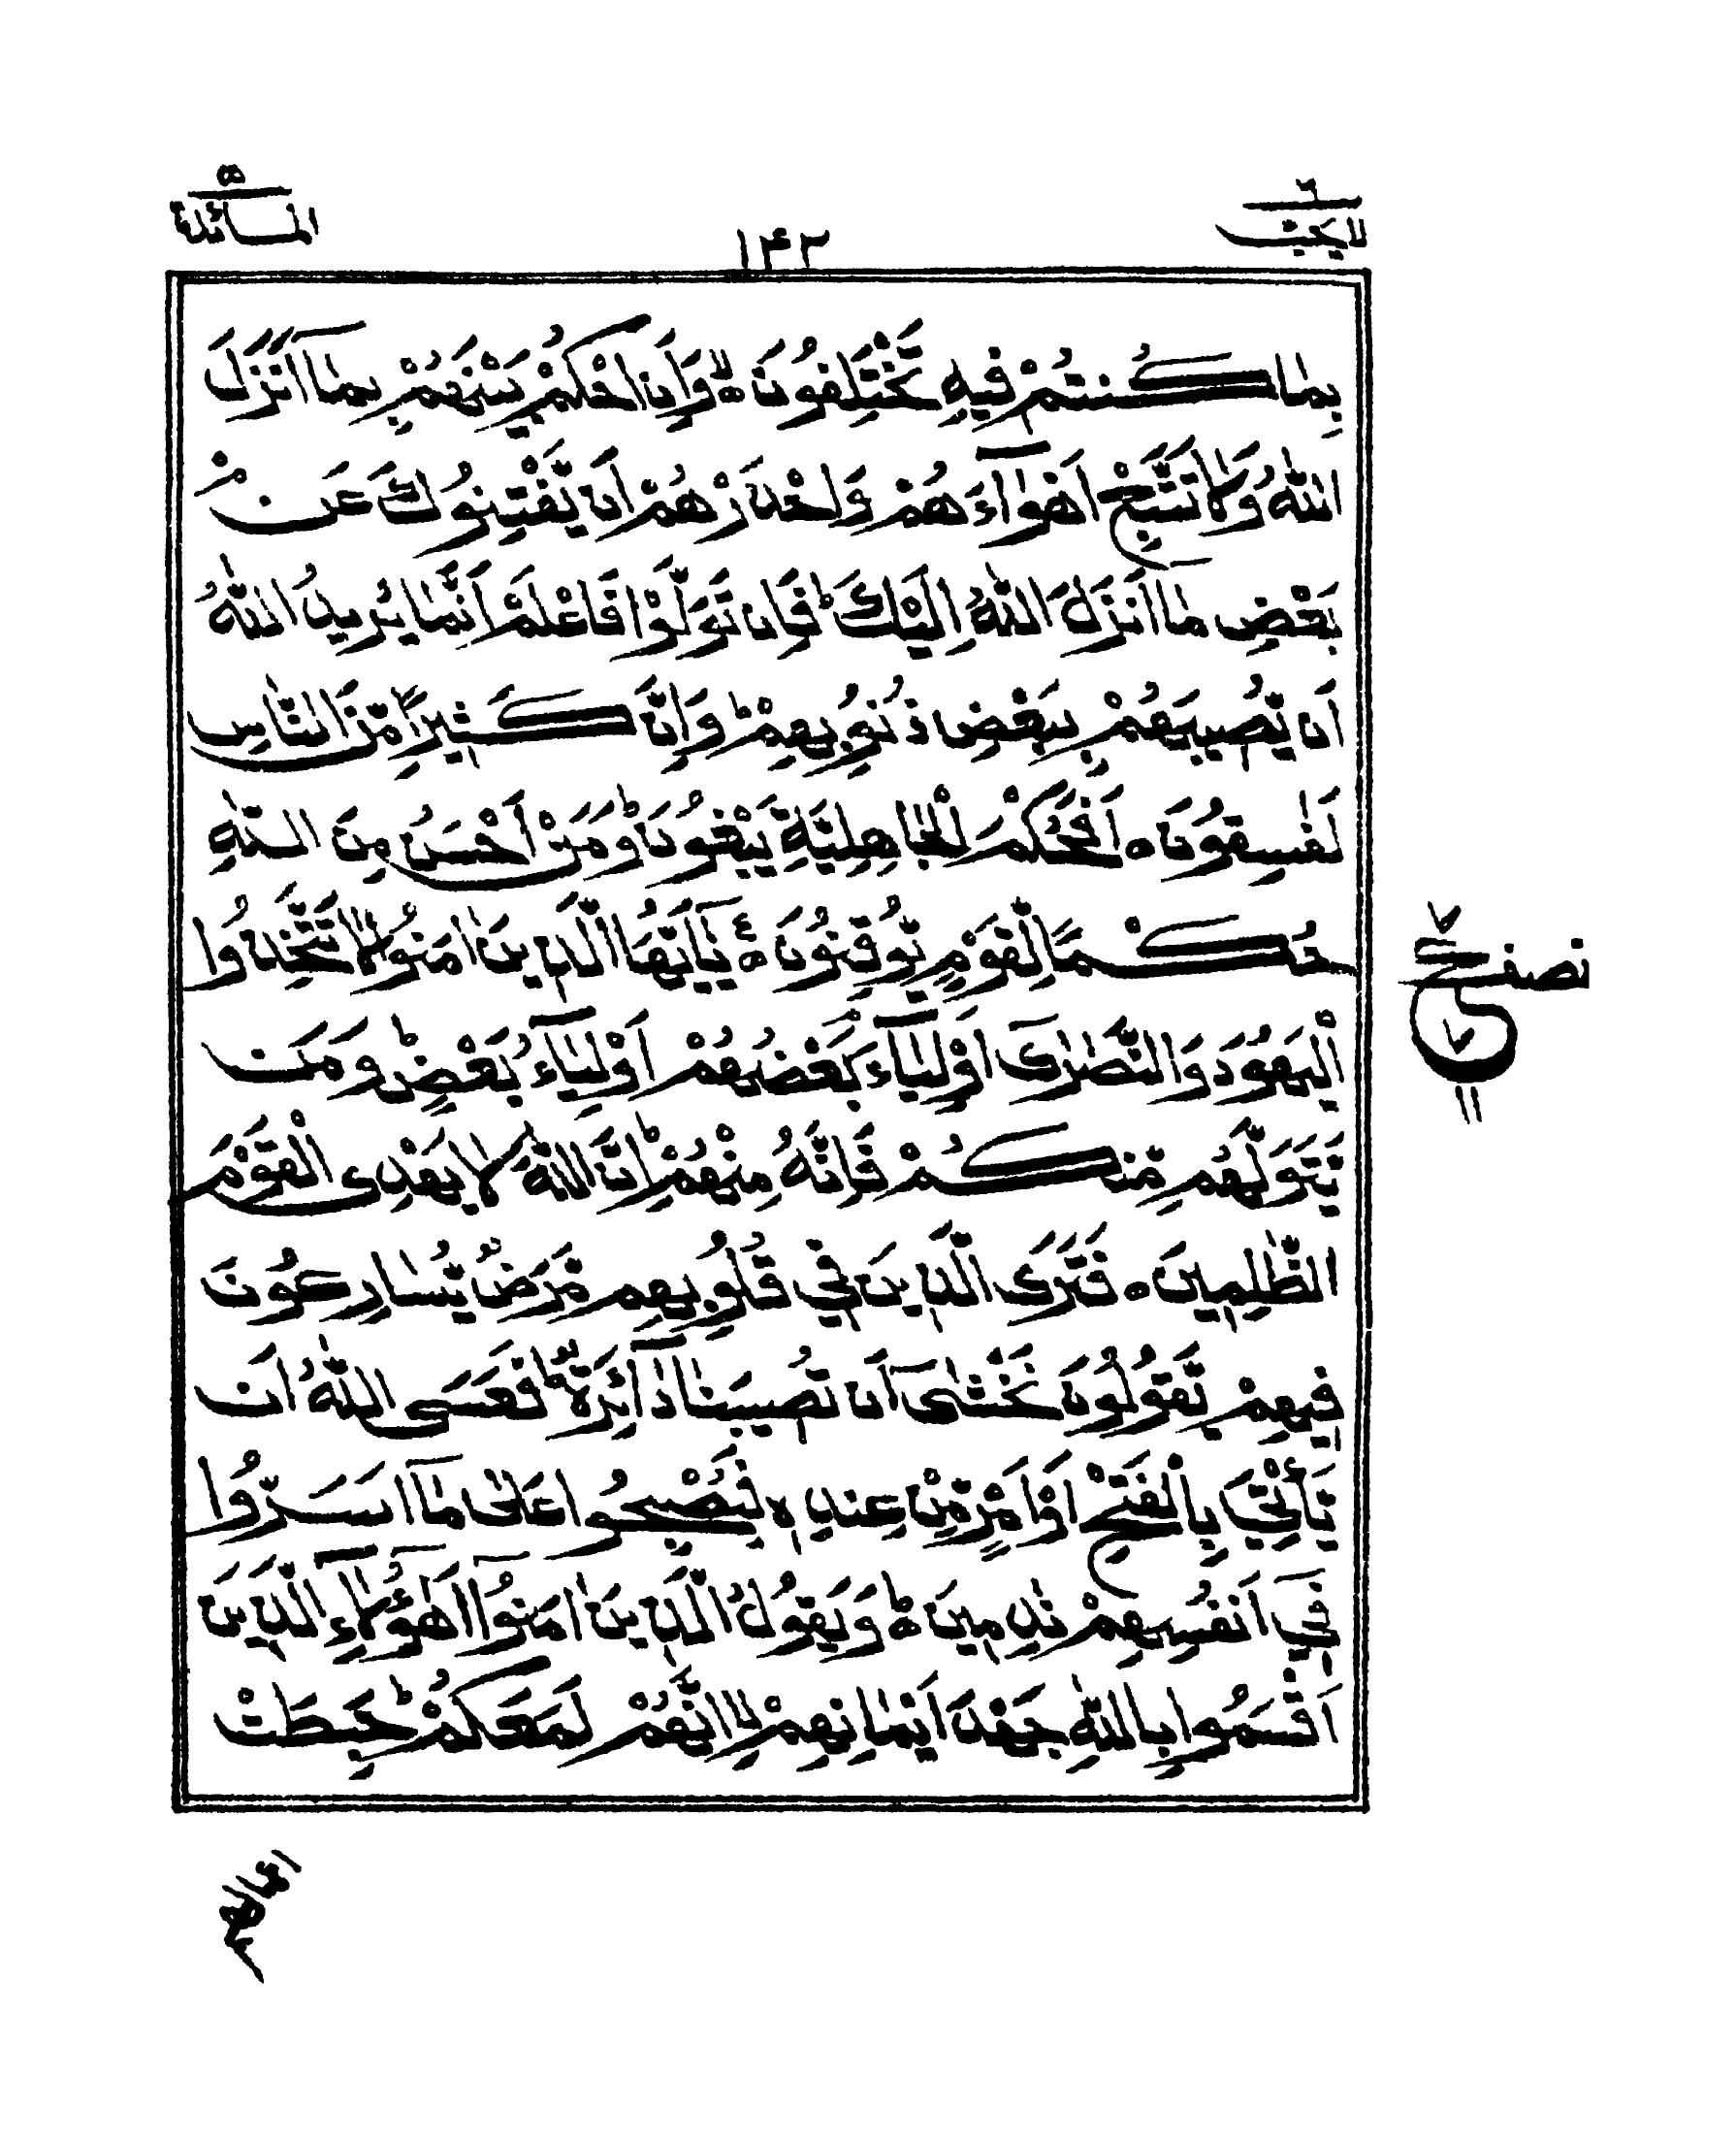 لا يحب ٦
١٤٣
المائدة ٥
بِمَا كُنتُمْ فِيهِ تَخْتَلِفُونَ ۙ وَاَنِ احْكُمْ بَيْنَهُمْ بِمَآ اَنْزَلَ
اللّٰهُ وَلَا تَتَّبِعْ اَهْوَآءَهُمْ وَاحْذَرْهُمْ اَنْ يَّفْتِنُوكَ عَنْۢ
بَعْضِ مَا اَنْزَلَ اللّٰهُ اِلَيْكَ ؕ فَاِنْ تَوَلَّوْا فَاعْلَمْ اَنَّمَا يُرِيدُ اللّٰهُ
اَنْ يُّصِيبَهُمْ بِبَعْضِ ذُنُوبِهِمْ ؕ وَاِنَّ كَثِيرًا مِّنَ النَّاسِ
لَفٰسِقُونَ ۝ اَفَحُكْمَ الْجَاهِلِيَّةِ يَبْغُونَ ؕ وَمَنْ اَحْسَنُ مِنَ اللّٰهِ
حُكْمًا لِّقَوْمٍ يُّوقِنُونَ ۝ يٰٓاَيُّهَا الَّذِينَ اٰمَنُوا لَا تَتَّخِذُوا
الْيَهُودَ وَالنَّصٰرٰىٓ اَوْلِيَآءَ ۘ بَعْضُهُمْ اَوْلِيَآءُ بَعْضٍ ؕ وَمَنْ
يَّتَوَلَّهُم مِّنكُمْ فَاِنَّهُ مِنْهُمْ ؕ اِنَّ اللّٰهَ لَا يَهْدِي الْقَوْمَ
الظّٰلِمِينَ ۝ فَتَرَى الَّذِينَ فِي قُلُوبِهِم مَّرَضٌ يُّسَارِعُونَ
فِيهِمْ يَقُولُونَ نَخْشٰىٓ اَنْ تُصِيبَنَا دَآئِرَةٌ ؕ فَعَسَى اللّٰهُ اَنْ
يَّأْتِيَ بِالْفَتْحِ اَوْ اَمْرٍ مِّنْ عِندِهِ فَيُصْبِحُوا عَلٰى مَآ اَسَرُّوا
فِيٓ اَنفُسِهِمْ نٰدِمِينَ ؕ وَيَقُولُ الَّذِينَ اٰمَنُوٓا اَهٰٓؤُلَآءِ الَّذِينَ
اَقْسَمُوا بِاللّٰهِ جَهْدَ اَيْمَانِهِمْ ۙ اِنَّهُمْ لَمَعَكُمْ ؕ حَبِطَتْ
نصف
ع
٧
اعمالهم